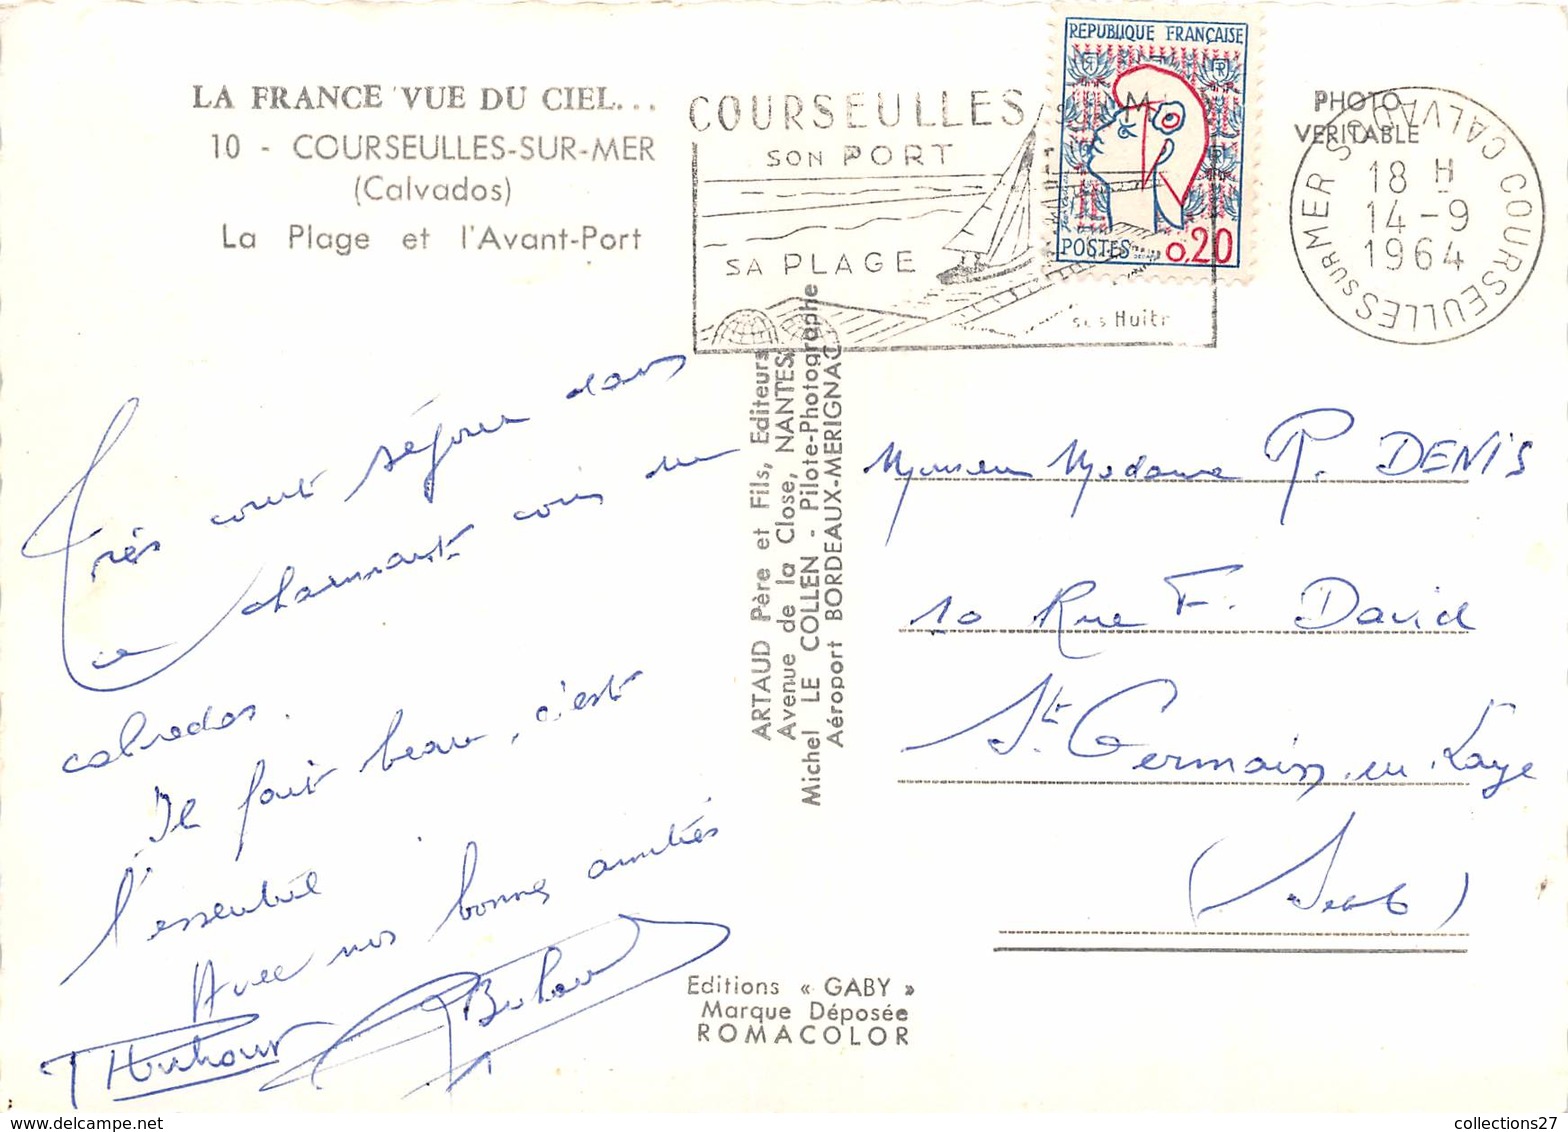 LA FRANCE VUE DU CIEL...
10 - COURSEULLES-SUR-MER
(Calvados)
La Plage et l'Avant-Port
COURSEULLES
SON PORT
SA PLAGE
ses Huitr
REPUBLIQUE FRANÇAISE
POSTES 0,20
PHOTO
VERITABLE
COURSEULLES SUR MER CALVADOS
18 H
14-9
1964
Très court séjour dans
ce charmant coin du
calvados.
Il fait beau, c'est
l'essentiel
Avec nos bonnes amitiés
ARTAUD Père et Fils, Editeurs
Avenue de la Close, NANTES
Michel LE COLLEN - Pilote-Photographe
Aéroport BORDEAUX-MERIGNAC
Monsieur Madame P. DENIS
10 Rue F. David
St Germain en Laye
Editions « GABY »
Marque Déposée
ROMACOLOR
collections27